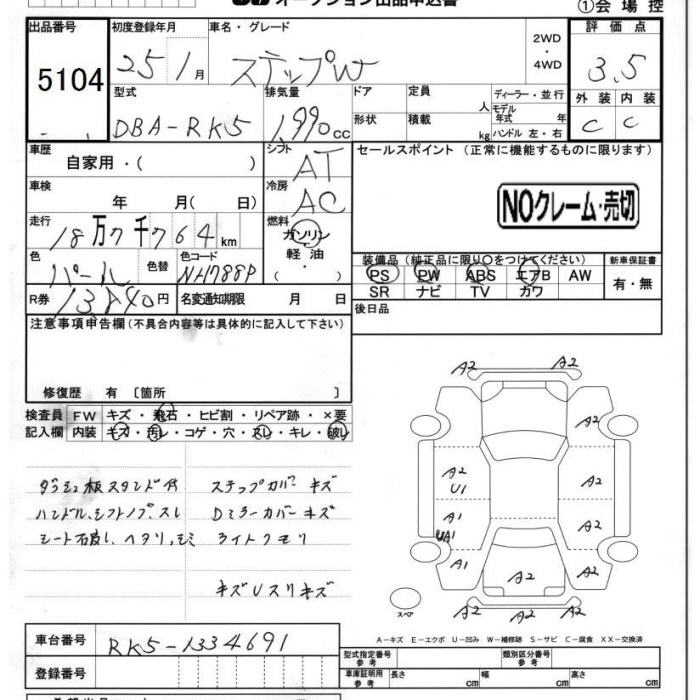 オークション出品申込書
①会場控
出品番号 初度登録年月 車名・グレード 2WD・4WD 評価点
5104 25 1月 ステップW 3.5
型式 排気量 ドア 定員 人 ディーラー・並行 外装 内装
DBA-RK5 1,990cc 形状 積載 kg モデル年式 年式 ハンドル 左・右 C C
車歴 シフト セールスポイント (正常に機能するものに限ります)
自家用・( ) AT
車検 冷房
年 月( 日) AC NOクレーム・売切
走行 燃料
18万7千764km ガソリン・軽油・( )
色 色替 色コード 装備品(純正品に限り○をつけてください) 新車保証書
パール NH788P PS PW ABS エアB AW 有・無
SR ナビ TV カワ
R券 13,840円 名変通知期限 月 日 後日品
注意事項申告欄(不具合内容等は具体的に記入して下さい)
修復歴 有 〔箇所 〕
検査員 FW キズ・飛石・ヒビ割・リペア跡・×要
記入欄 内装 キズ・汚レ・コゲ・穴・スレ・キレ・破レ
A2 A2
A2
A2 U1 A2
A1 A2
UA1
A1 A2 A2
A2 A2 A2
スペア
ダッシュ板スタンド付 ステップカバー キズ
ハンドル、シフトノブ、スレ Dミラーカバー キズ
ライトクモリ
A-キズ E-エクボ U-凹み W-補修跡 S-サビ C-腐食 XX-交換済
車台番号 RK5-1334691
登録番号
型式指定番号 参考 類別区分番号 参考
車庫証明用 参考 長さ cm 幅 cm 高さ cm